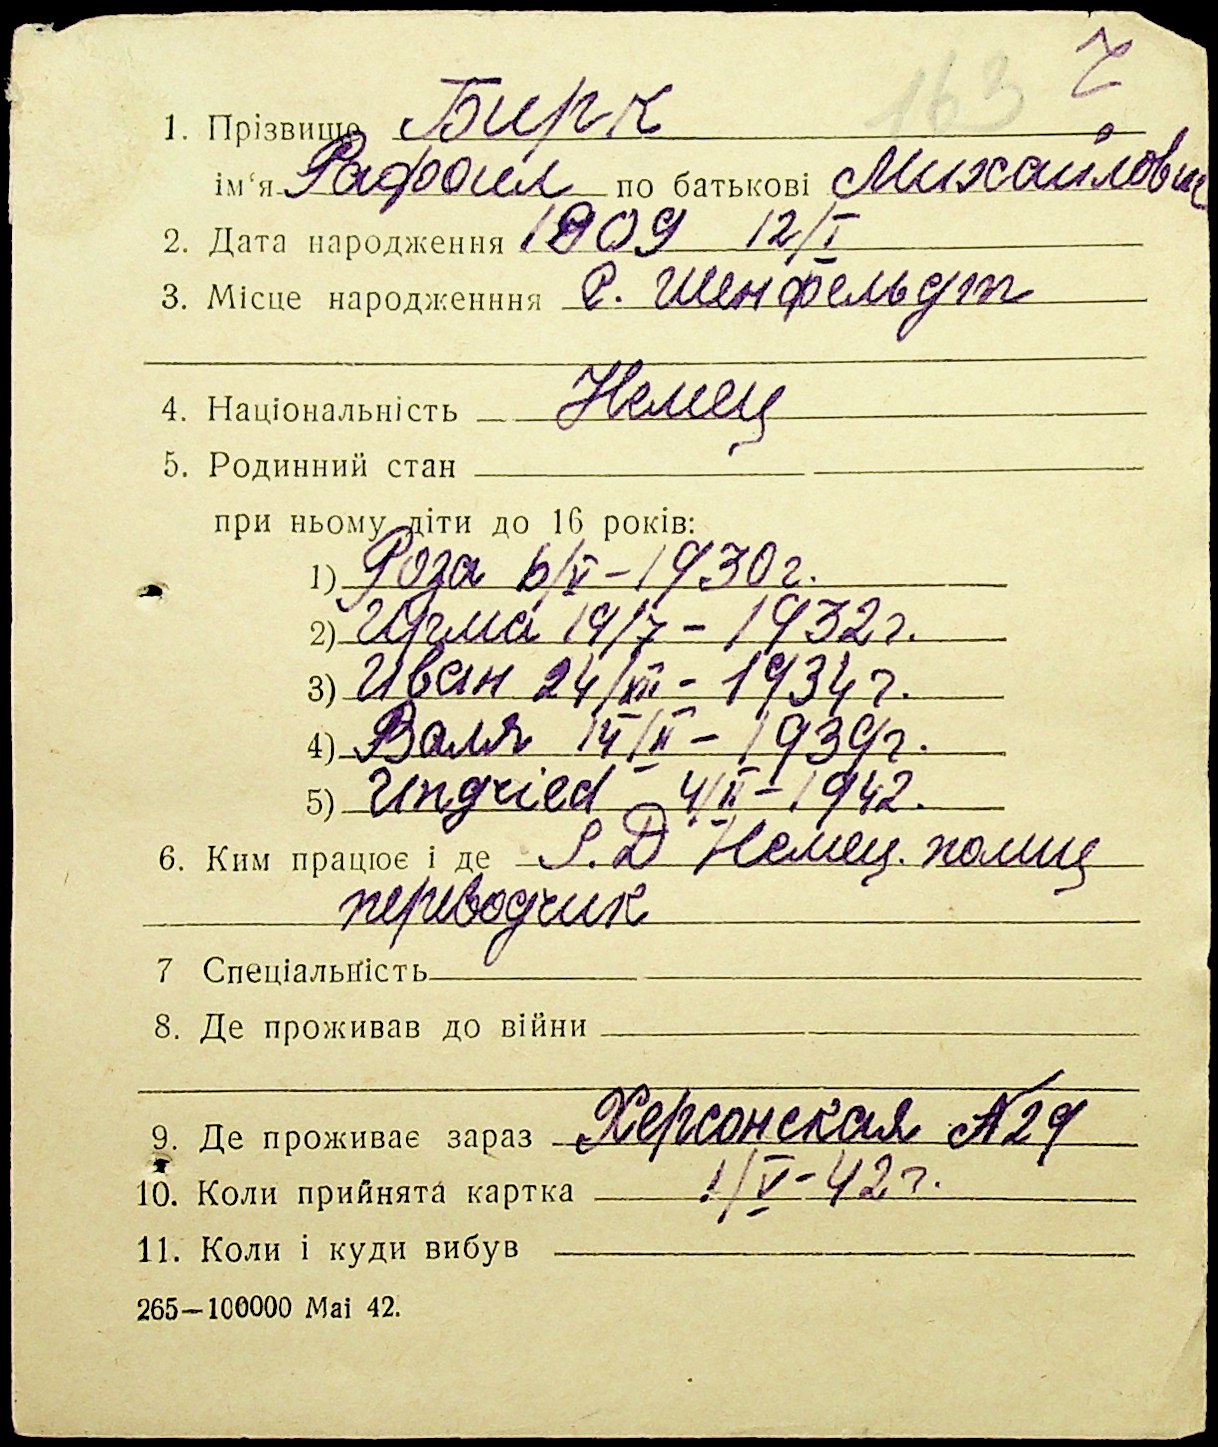 163 7
1. Прізвище Бирк
ім'я Рафаил по батькові Михайлович
2. Дата народження 1909 12/I
3. Місце народженння с. Шенфельдт
4. Національність Немец
5. Родинний стан
при ньому діти до 16 років:
1) Роза 6/V – 1930 г.
2) Ирма 19/7 – 1932 г.
3) Иван 24/XII – 1934 г.
4) Валя 14/II – 1939 г.
5) Ungried 4/II – 1942.
6. Ким працює і де S.D Немец. полиц
переводчик
7 Спеціальність
8. Де проживав до війни
9. Де проживає зараз Херсонская №29
10. Коли прийнята картка 1/V – 42 г.
11. Коли і куди вибув
265—100000 Mai 42.